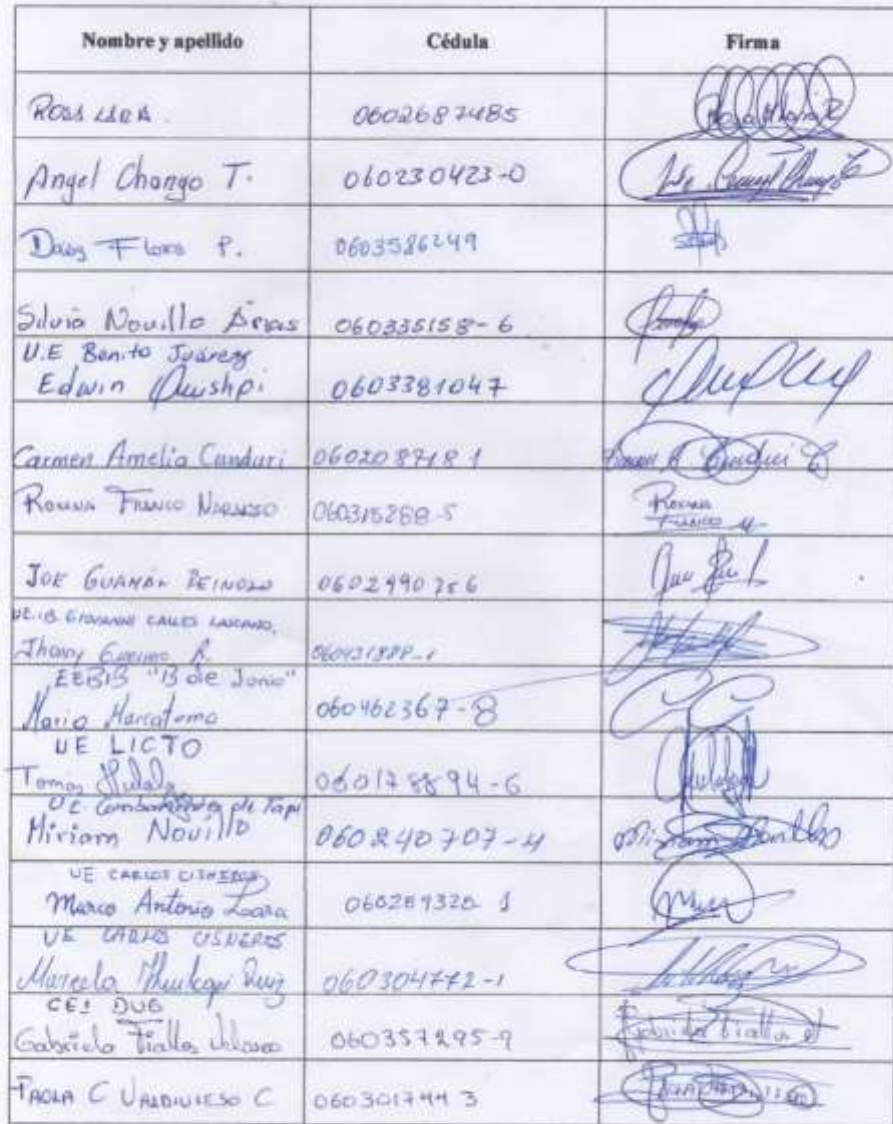 Nombre y apellido Cédula Firma
ROSA LARA. 0602687485
Angel Chango T. 060230423-0
Daisy Flores P. 0603586249
Silvia Novillo Arias 060335158-6
U.E Benito Juárez
Edwin Quishpi 0603381047
Carmen Amelia Cunduri 060208718 1
Roxana Franco Naranjo 060315288-5 Roxana
Franco N
JOE GUAMÁN REINOSO
GIOVANNI CALLES LASCANO,
Jhony R.
EEBIB "13 de Junio"
Mario Marcatoma 060462367-8
UE LICTO
Tomás Hidalgo 060178894-6
UE Combatientes de Tapi
Miriam Novillo 060240707-4 Miriam Novillo
UE CARLOS CISNEROS
Marco Antonio Loara 060289320 1
UE CARLOS CISNEROS
Marcela Ruiz 060304772-1
CEI DUG
Gabriela Fiallos Velasco 060357295-9 Gabriela Fiallos
PAOLA C VALDIVIESO C 060301744 3